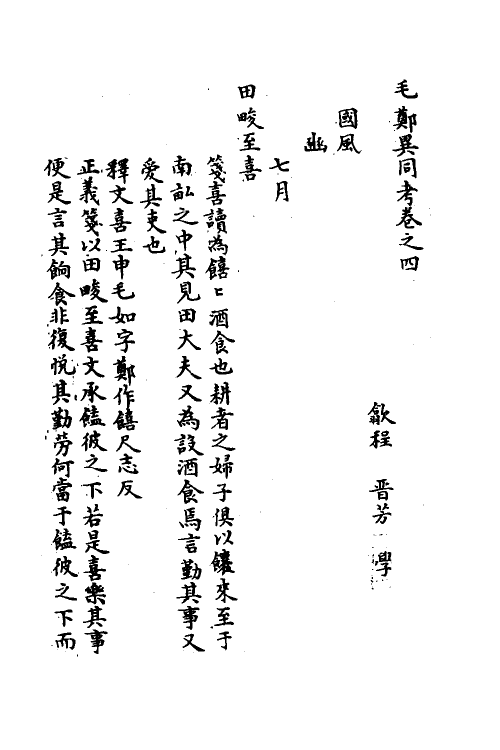 毛鄭異同考卷之四
歙程 晉芳 學
國風
豳
七月
田畯至喜
箋喜讀為饎〻酒食也耕者之婦子俱以饟來至于
南畝之中其見田大夫又為設酒食焉言勤其事又
愛其吏也
釋文喜王申毛如字鄭作饎尺志反
正義箋以田畯至喜文承饁彼之下若是喜樂其事
便是言其餉食非復悅其勤勞何當于饁彼之下而